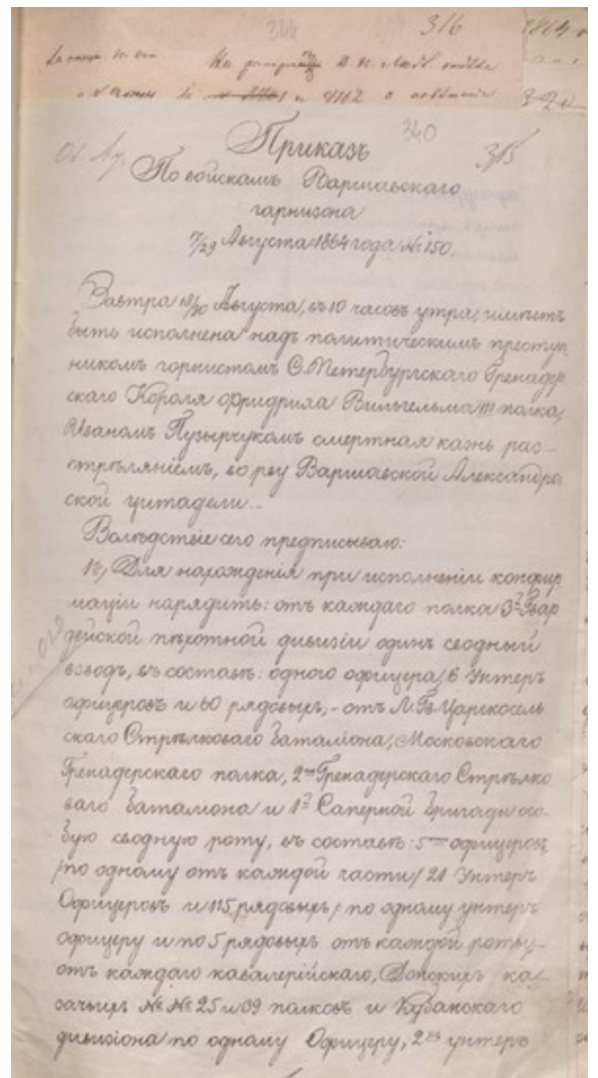 344 316 1864
340
315
Приказъ
По войскамъ Варшавскаго
гарнизона
17/29 Августа 1864 года № 150.
Завтра 18/30 Августа, въ 10 часовъ утра, имѣетъ
быть исполнена надъ политическимъ преступ
никомъ горнистомъ С. Петербургскаго Гренадер
скаго Короля Фридриха Вильгельма III полка,
Иваномъ Пузырчукомъ смертная казнь раз-
стрѣляніемъ, во рву Варшавской Александров
ской цитадели.-
Вслѣдствіе сего предписываю:
1е, Для нахожденія при исполненіи конфир
маціи нарядить: отъ каждаго полка 3й Гвар
дейской пѣхотной дивизіи одинъ сводный
взводъ, въ составѣ: одного офицера, 6 Унтеръ
офицеровъ и 60 рядовыхъ,- отъ Л. Гв. Царскосель
скаго Стрѣлковаго баталіона, Московскаго
Гренадерскаго полка, 2го Гренадерскаго Стрѣлко
ваго баталіона и 1й Саперной бригады осо-
бую сводную роту, въ составѣ: 5ти офицеровъ
/по одному отъ каждой части/ 21 Унтеръ
Офицеровъ и 115 рядовыхъ /по одному унтеръ
офицеру и по 5 рядовыхъ отъ каждой роты/-
отъ каждаго кавалерійскаго, Донскихъ ка
зачьихъ №№ 25 и 39 полковъ и Кубанскаго
дивизіона по одному Офицеру, 2хъ унтеръ